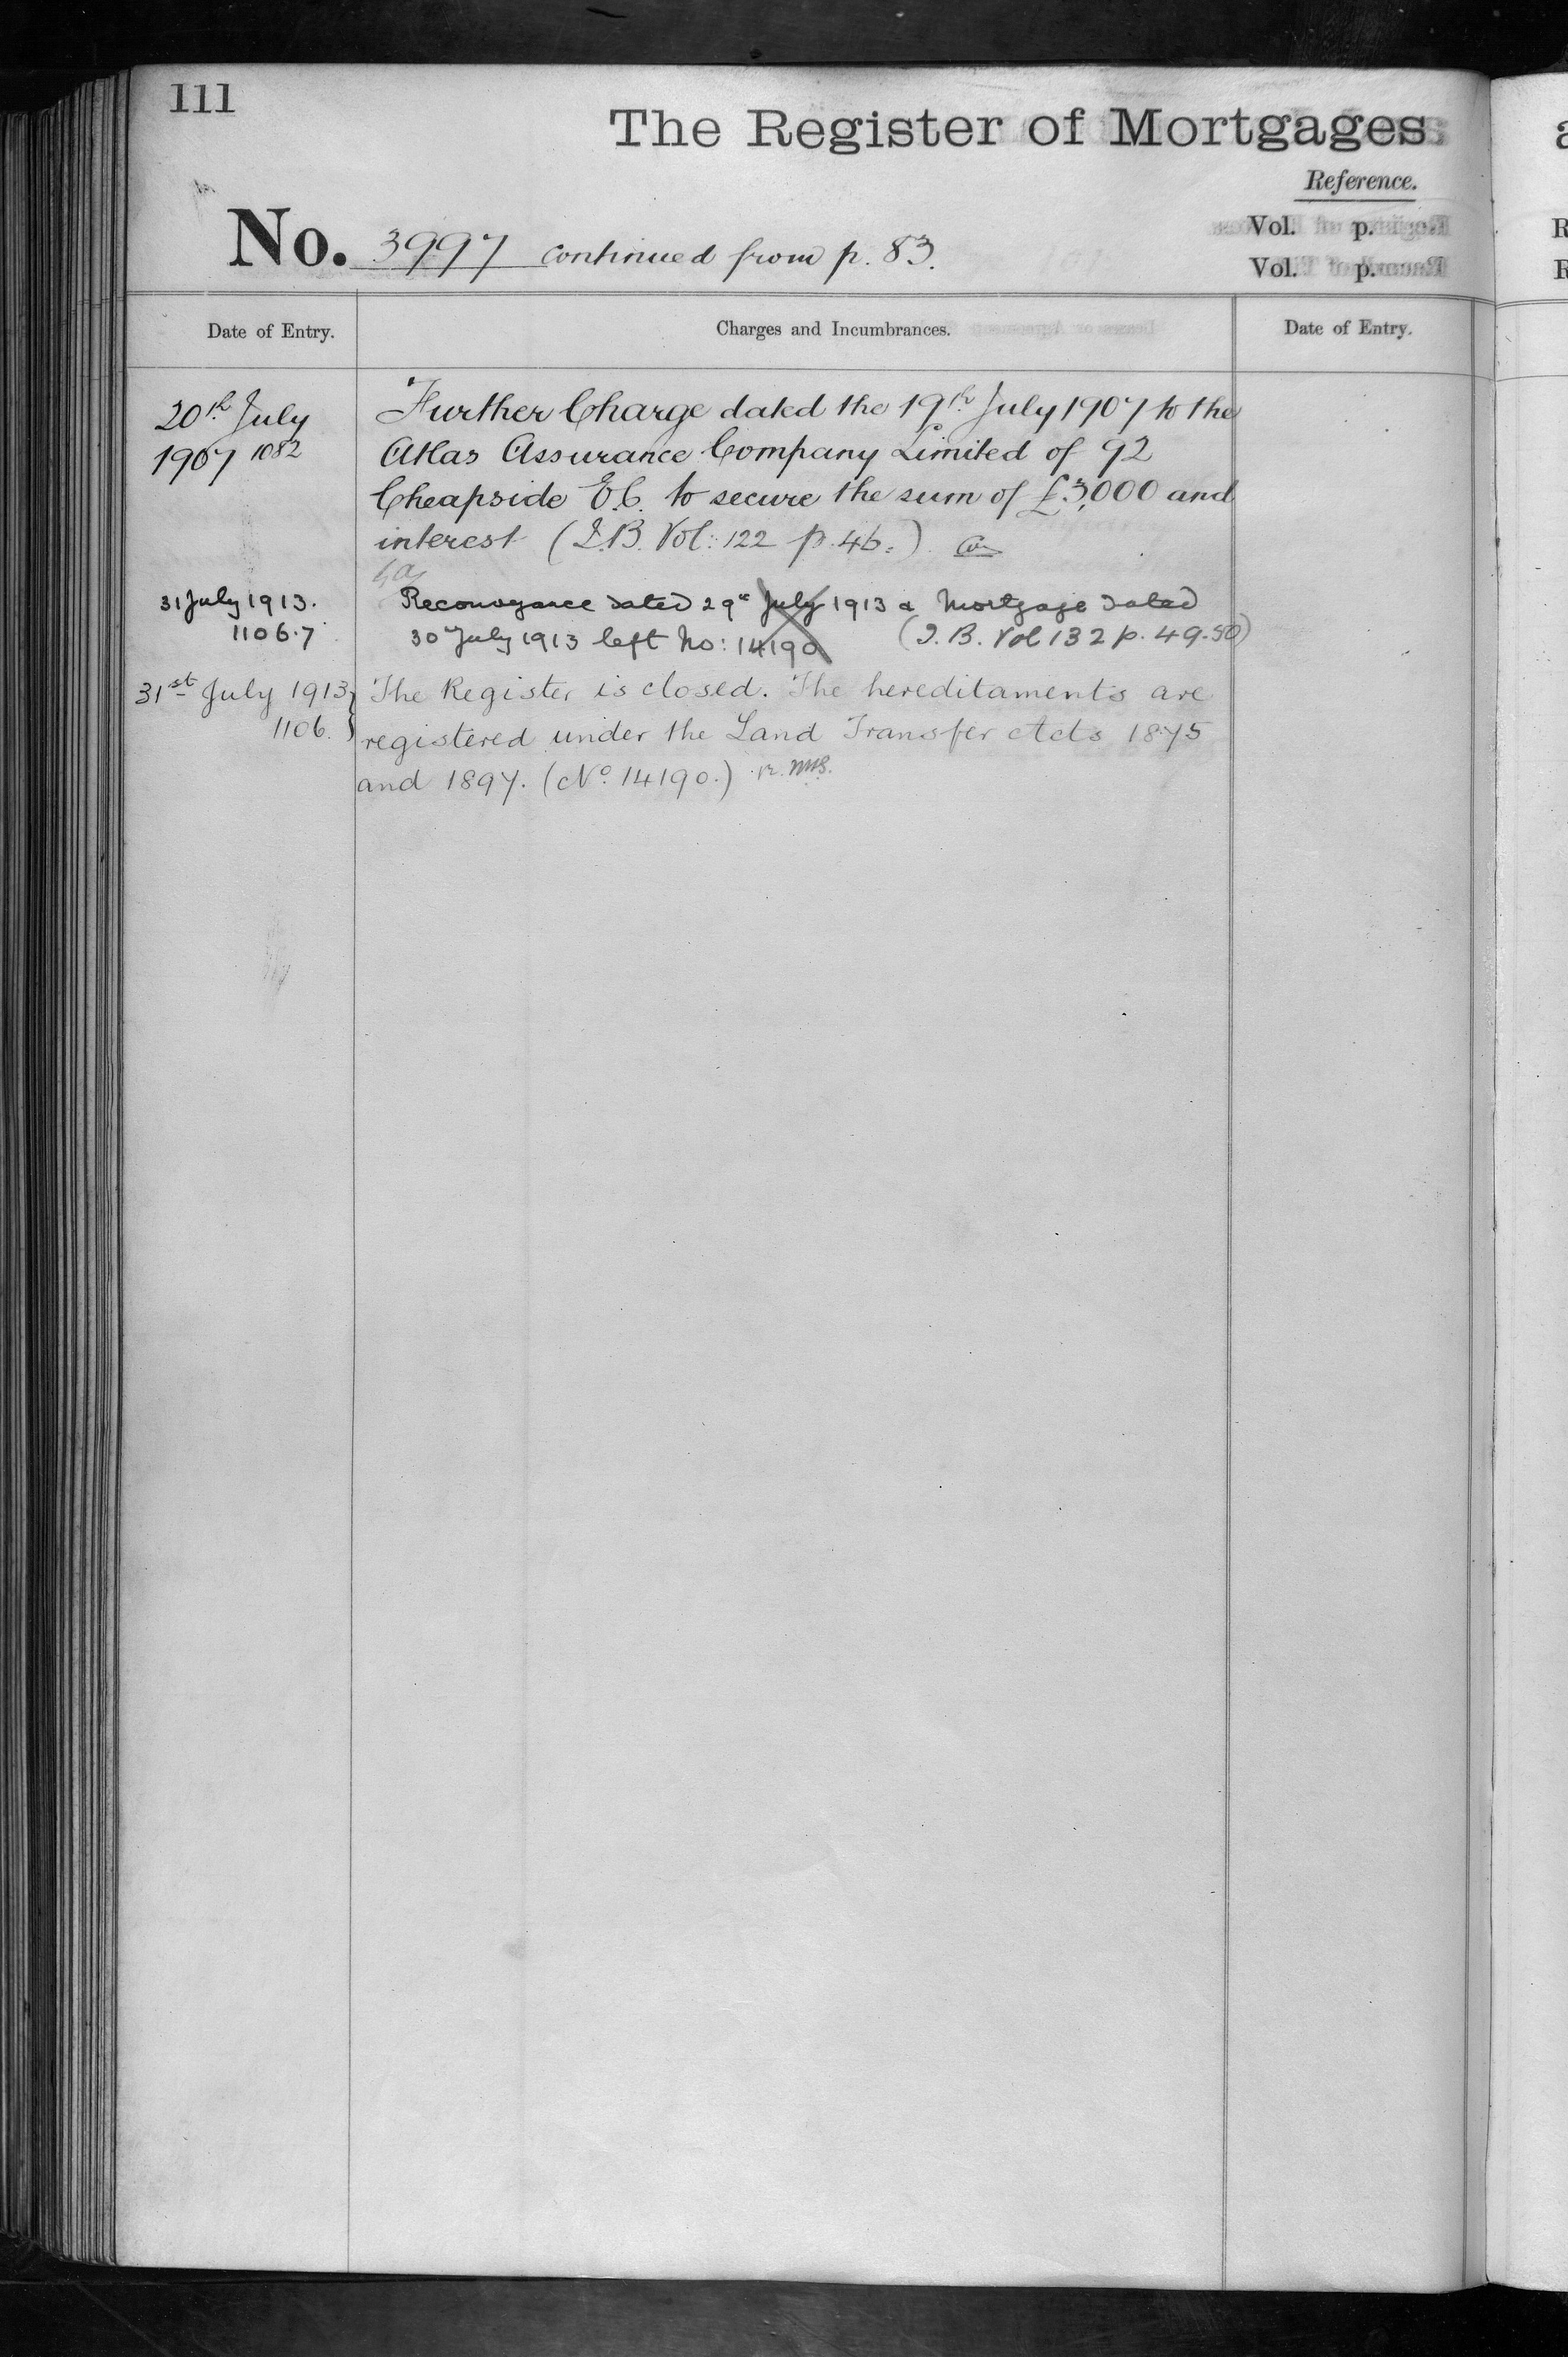 111
The Register of Mortgages
Reference.
Vol. p.
Vol. p.
No. 3997 continued from p. 83.
Date of Entry.
Charges and Incumbrances.
Date of Entry.
20th July
1907 1082
Further Charge dated the 19th July 1907 to the
Atlas Assurance Company Limited of 92
Cheapside E.C. to secure the sum of £3,000 and
interest (I.B. Vol: 122 p. 46.)
31 July 1913.
1106.7
Reconveyance dated 29th July 1913 & Mortgage dated
30th July 1913 left No: 14190 (I.B. Vol 132 p. 49-50)
31st July 1913
1106.
The Register is closed. The hereditaments are
registered under the Land Transfer Acts 1875
and 1897. (No. 14190.)